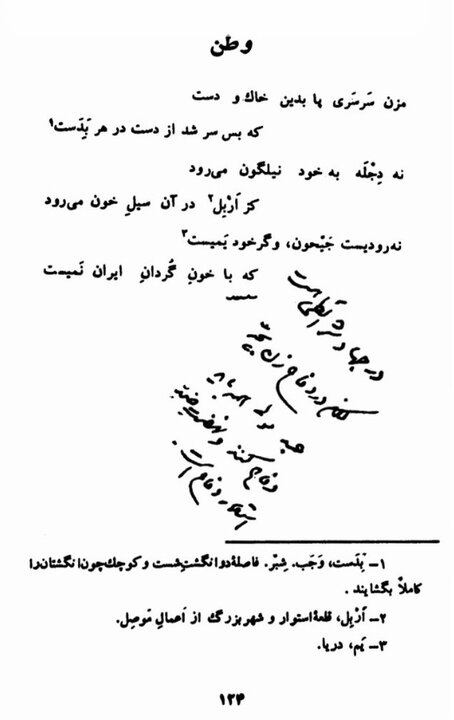 وطن
مزن سَرسَری پا بدین خاك و دست
که بس سر شد از دست در هر بَِدَست۱
نه دِجْلَه به خود نیلگون می‌رود
کز اَرْبِل۲ در آن سیلِ خون می‌رود
نه رودیست جَیْحون، وگر خود یَمیست۳
که با خونِ گُردانِ ایران نَمیست
در جهاد
در دفاع
دفاع کنند و
دفاع است.
۱ـ بَِدَست، وَجَب. شِبْر. فاصلۀ دو انگشتِ شست و کوچك چون انگشتان را
کاملاً بگشایند.
۲ـ اَرْبِل، قلعۀ استوار و شهر بزرگ از اَعمالِ مَوصِل.
۳ـ یَم، دریا.
۱۲۴